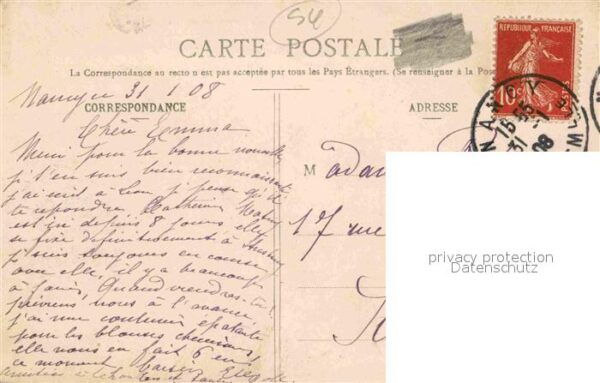 54
CARTE POSTALE
RÉPUBLIQUE FRANÇAISE
10
La Correspondance au recto n est pas acceptée par tous les Pays Étrangers. (Se renseigner à la Pos
NANCY
31
08
Nancy 31 1 08
CORRESPONDANCE
ADRESSE
Chère Emma
Merci pour la bonne nouvelle
j'en suis bien reconnaissante
j'ai écrit à Léon je pense qu'il
te repondra
est ici depuis 8 jours elle
se fixe définitivement à Nancy
je suis toujours en course
avec elle, il y a beaucoup
à faire, Quand viendras-tu?
préviens nous à l'avance
j'ai une couturière épatante
pour les blouses chemises
elle nous en fait 6 en
ce moment baisers
Madam
17 rue
privacy protection
Datenschutz